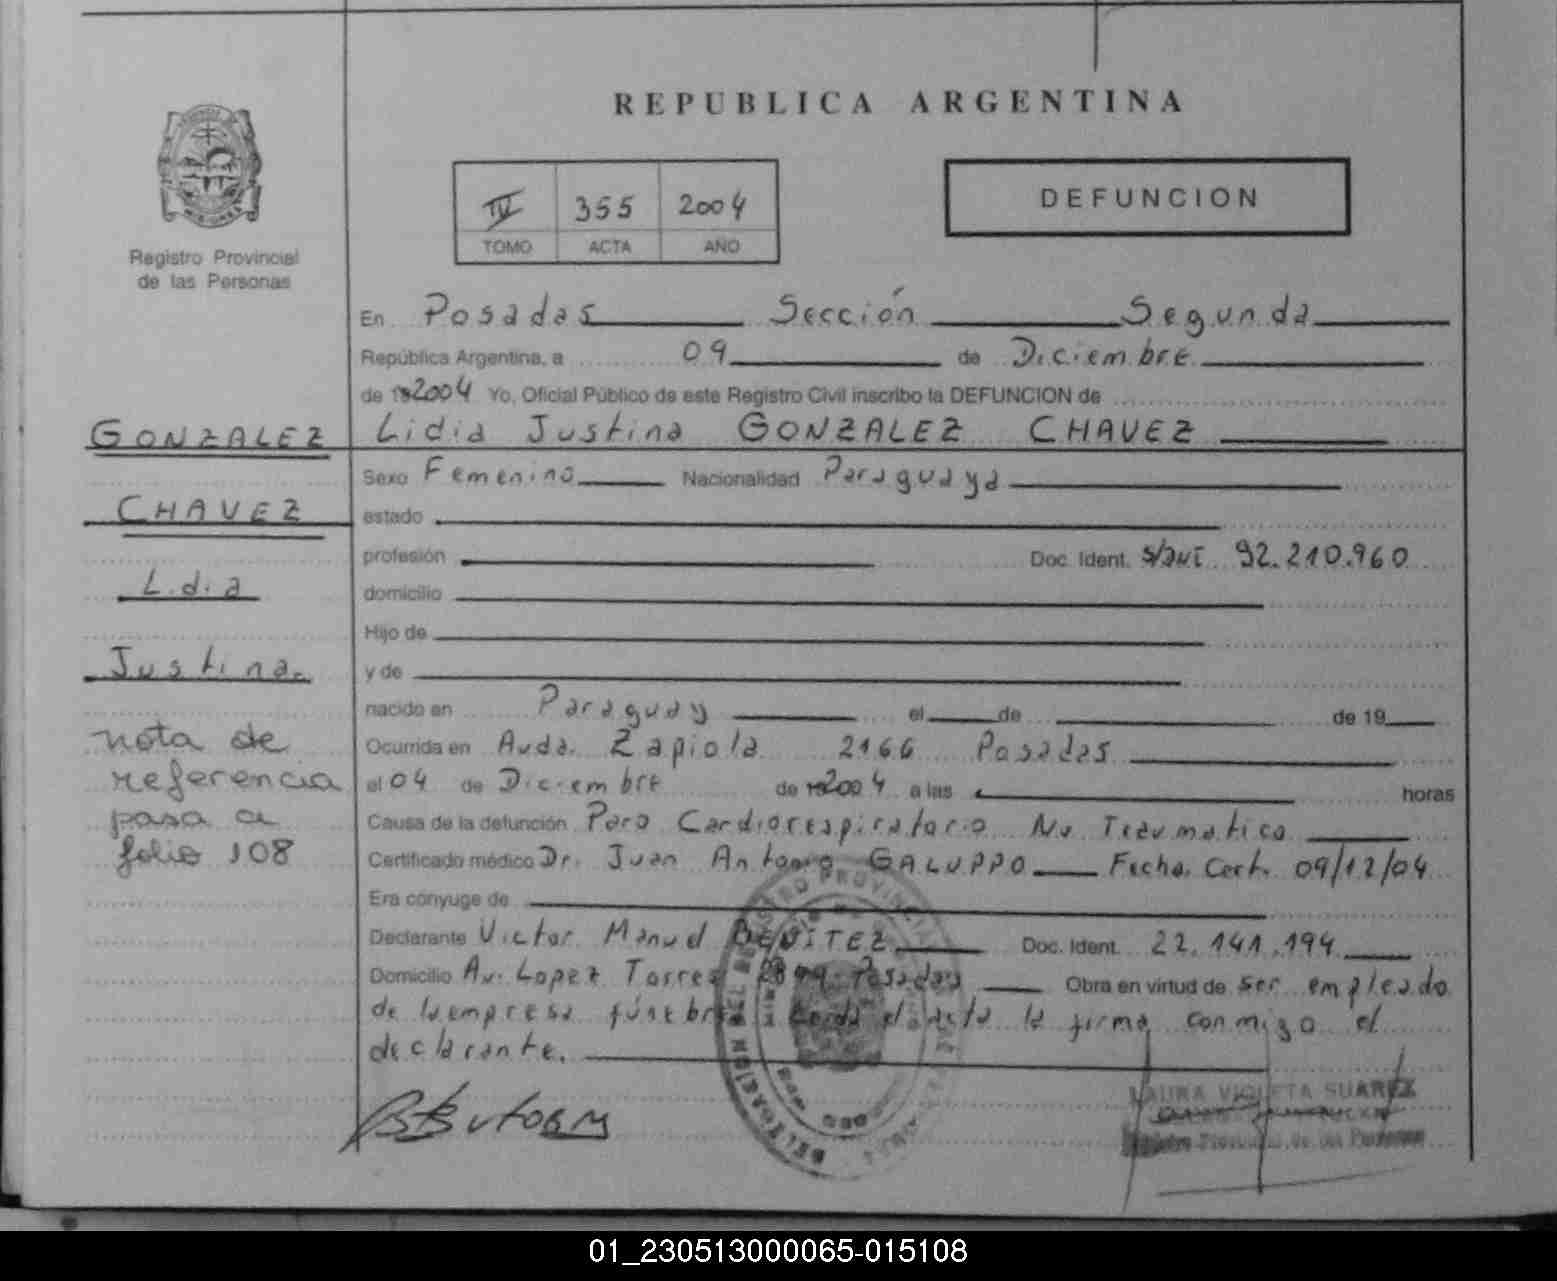 REPUBLICA ARGENTINA
IV 355 2004
TOMO ACTA AÑO
DEFUNCION
Registro Provincial
de las Personas
En Posadas Sección Segunda
República Argentina, a 09 de Diciembre
de 2004 Yo, Oficial Público de este Registro Civil inscribo la DEFUNCION de
Lidia Justina GONZALEZ CHAVEZ
Sexo Femenino Nacionalidad Paraguaya
estado
profesión Doc. Ident. 92.210.960
domicilio
Hijo de
y de
nacido en Paraguay el de de 19
Ocurrida en Avda. Zapiola 2166 Posadas
el 04 de Diciembre de 2004 a las horas
Causa de la defunción Paro Cardiorespiratorio No Traumatico
Certificado médico Dr. Juan Antonio GALUPPO Fecha. Cert. 09/12/04
Era cónyuge de
Declarante Victor Manuel BENITEZ Doc. Ident. 22.141.194
Domicilio Av. Lopez Torres Posadas Obra en virtud de ser empleado
de la empresa fúnebre el acta la firma conmigo el
declarante.
GONZALEZ
CHAVEZ
Lidia
Justina.
nota de
referencia
pasa a
folio 108
LAURA VIOLETA SUAREZ
Registro Provincial de las Personas
01_230513000065-015108